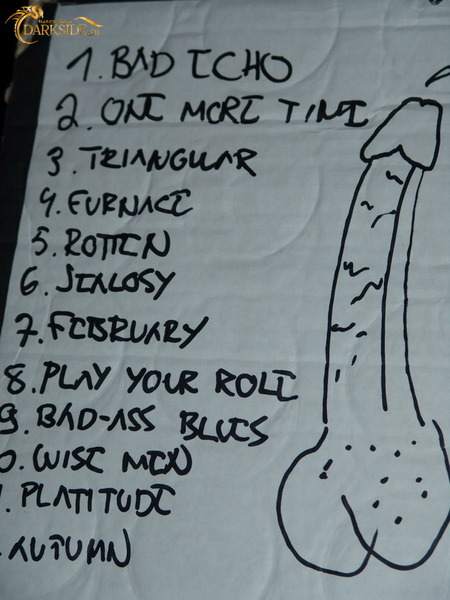 DARKSIDE
1. BAD ECHO
2. ONE MORE TIME
3. TRIANGULAR
4. FURNACE
5. ROTTEN
6. JEALOSY
7. FEBRUARY
8. PLAY YOUR ROLE
9. BAD-ASS BLUES
0. WISE MEN
. PLATITUDE
. AUTUMN